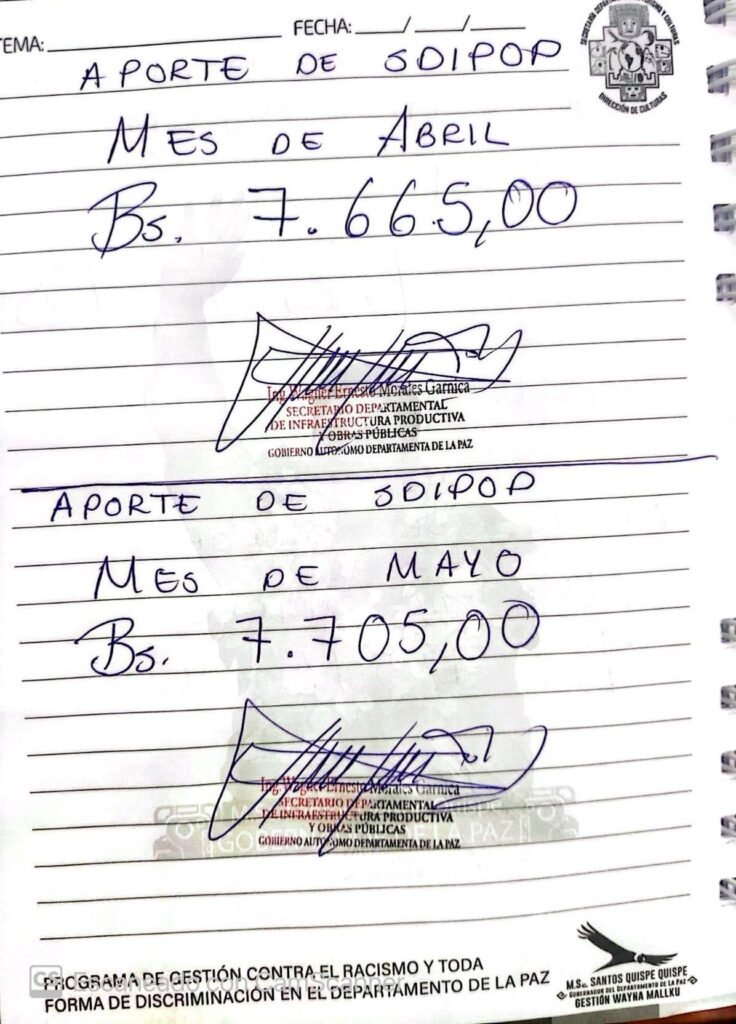 TEMA:
FECHA: / /
DIRECCIÓN DE CULTURAS
APORTE DE SDIPOP
MES DE ABRIL
Bs. 7.665,00
Ing. Wagner Ernesto Morales Garnica
SECRETARIO DEPARTAMENTAL
DE INFRAESTRUCTURA PRODUCTIVA
Y OBRAS PÚBLICAS
GOBIERNO AUTONOMO DEPARTAMENTA DE LA PAZ
APORTE DE SDIPOP
MES DE MAYO
Bs. 7.705,00
Ing. Wagner Ernesto Morales Garnica
SECRETARIO DEPARTAMENTAL
DE INFRAESTRUCTURA PRODUCTIVA
Y OBRAS PÚBLICAS
GOBIERNO AUTONOMO DEPARTAMENTA DE LA PAZ
PROGRAMA DE GESTIÓN CONTRA EL RACISMO Y TODA
FORMA DE DISCRIMINACIÓN EN EL DEPARTAMENTO DE LA PAZ
CS Escaneado con CamScanner
M.Sc. SANTOS QUISPE QUISPE
GOBERNADOR DEL DEPARTAMENTO DE LA PAZ
GESTIÓN WAYNA MALLKU